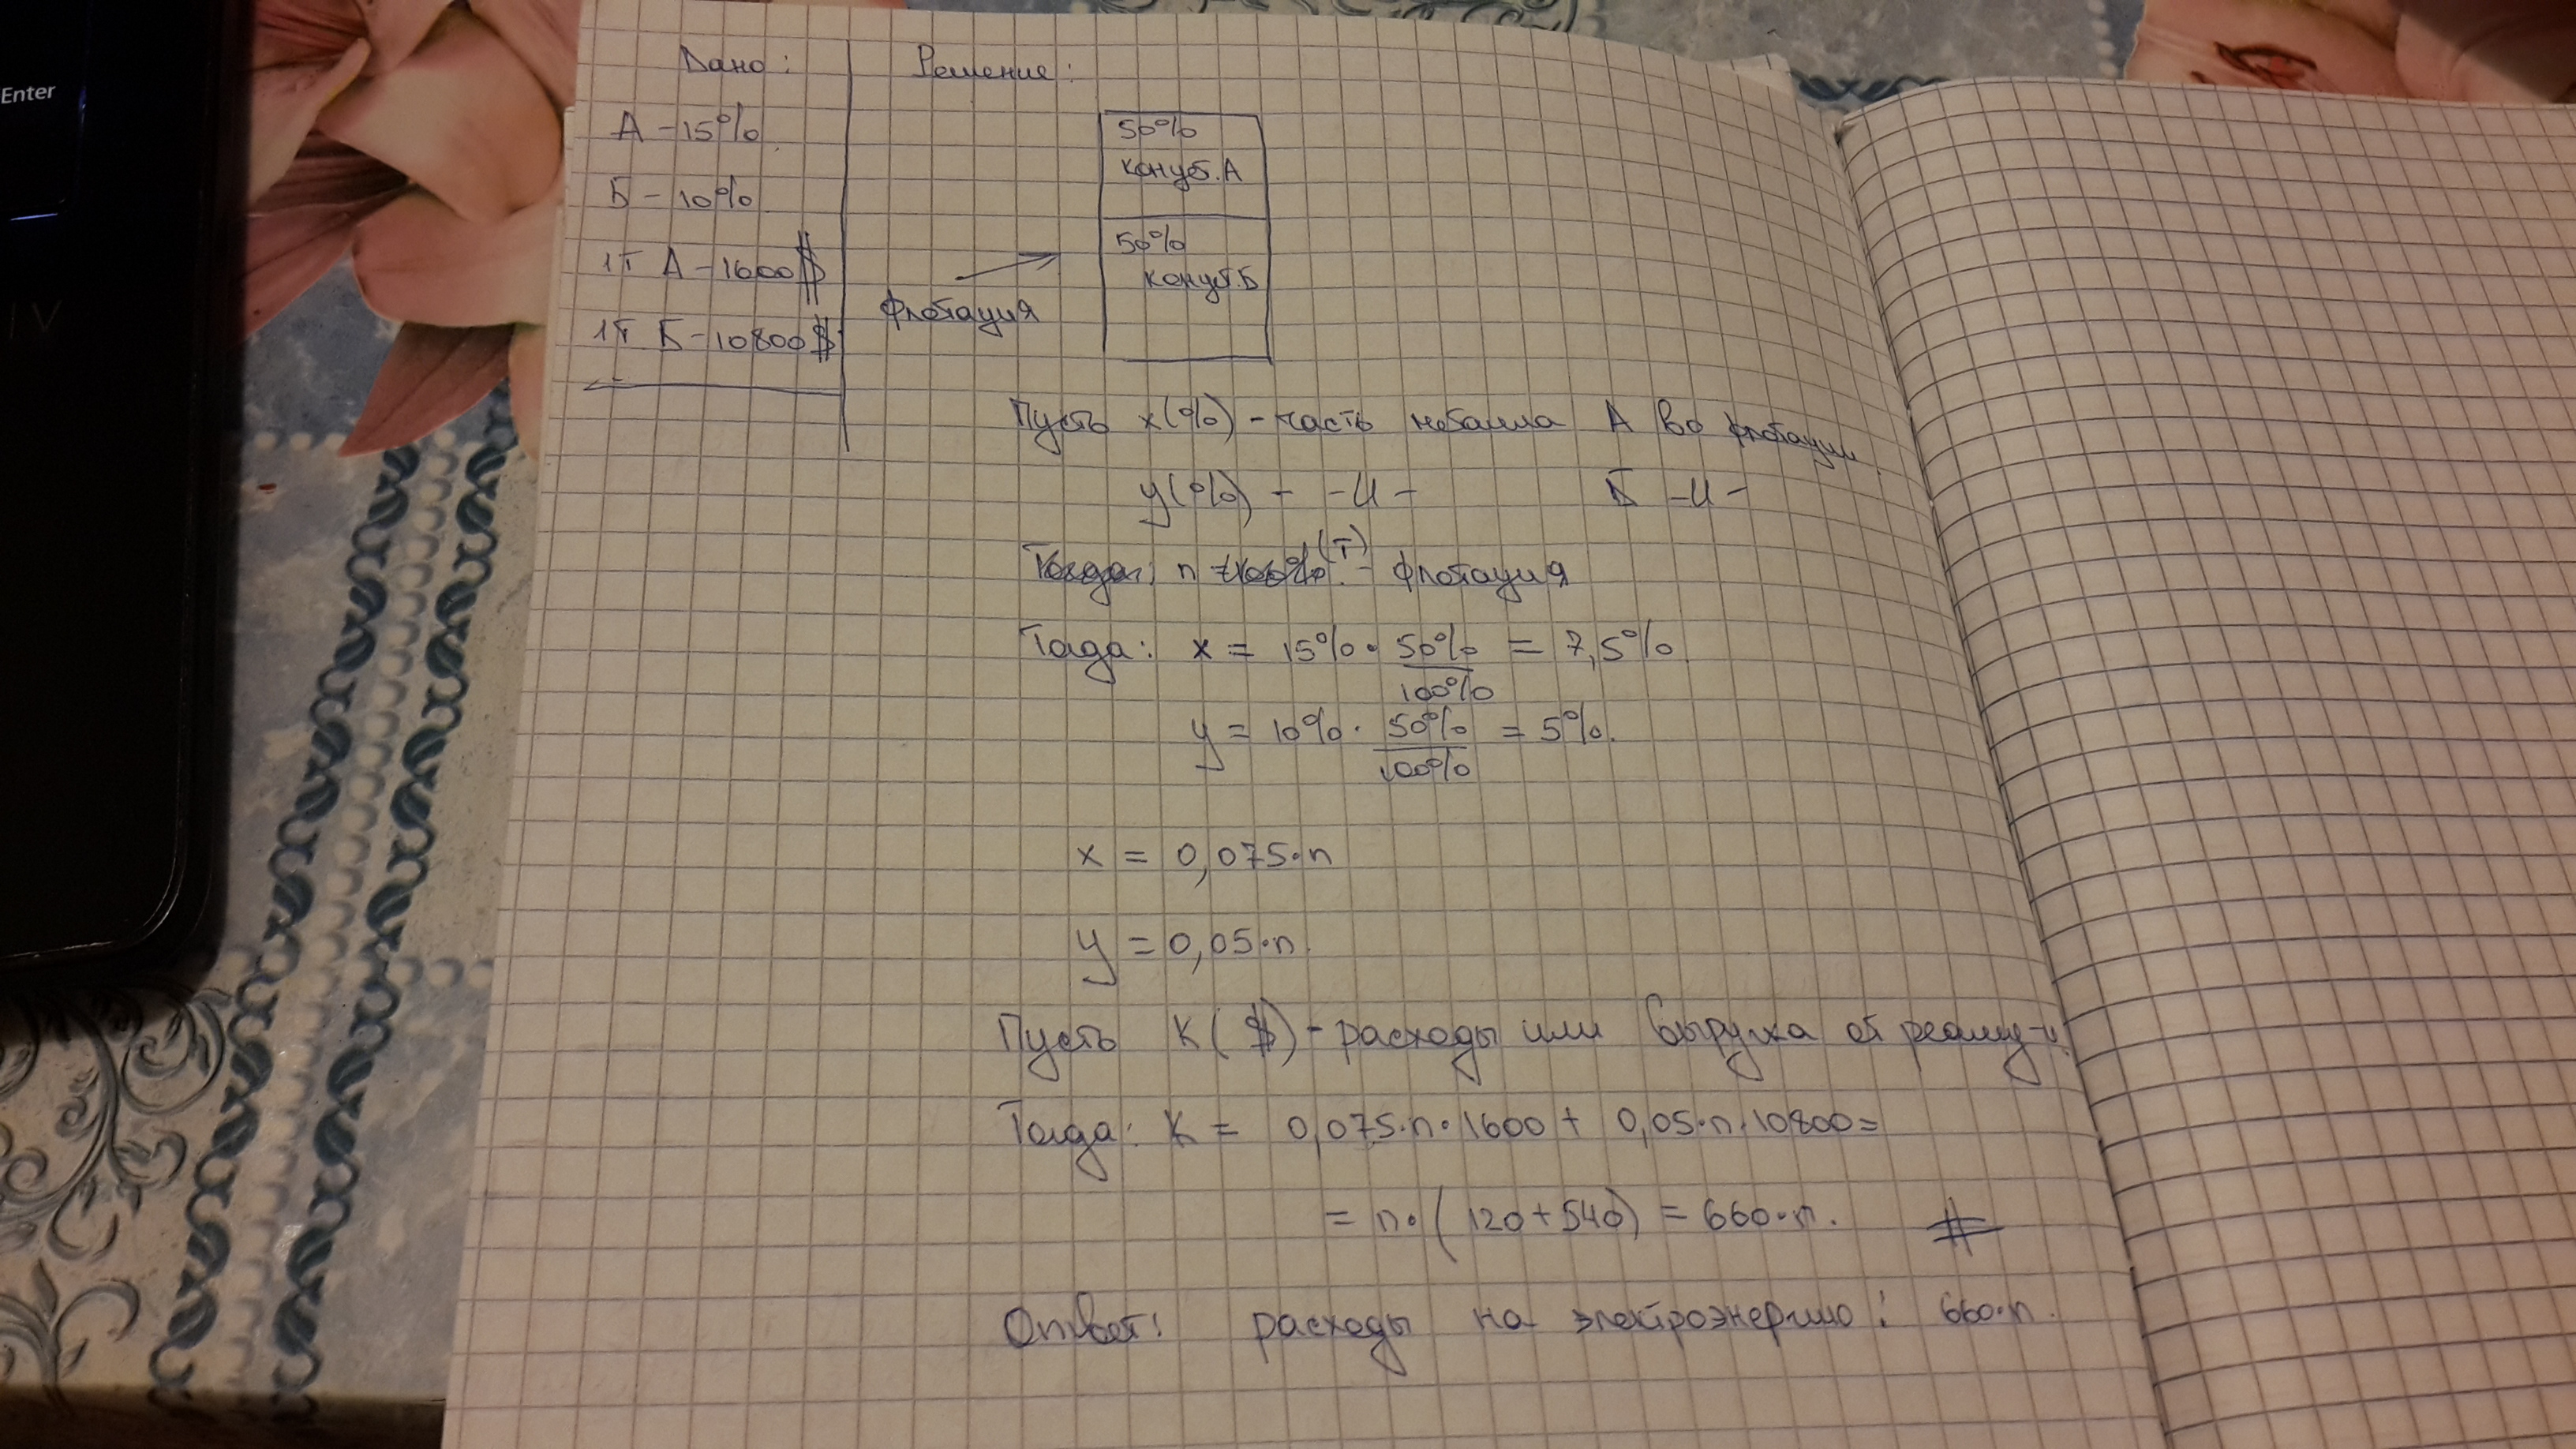 Enter
Дано:
А - 15%
Б - 10%
1т А - 1600$
1т Б - 10800$
Решение:
50%
концт. А
50%
концт. Б
флотация
Пусть x(%) - часть металла А во флотации
y(%) - -//- Б -//-
n (т) - флотация
Тогда: x = 15% · 50%/100% = 7,5%
y = 10% · 50%/100% = 5%.
x = 0,075·n
y = 0,05·n.
Пусть К($) - расходы или выручка от реализ-и.
Тогда: К = 0,075·n·1600 + 0,05·n·10800 =
= n·(120+540) = 660·n.
Ответ: расходы на электроэнергию: 660·n.